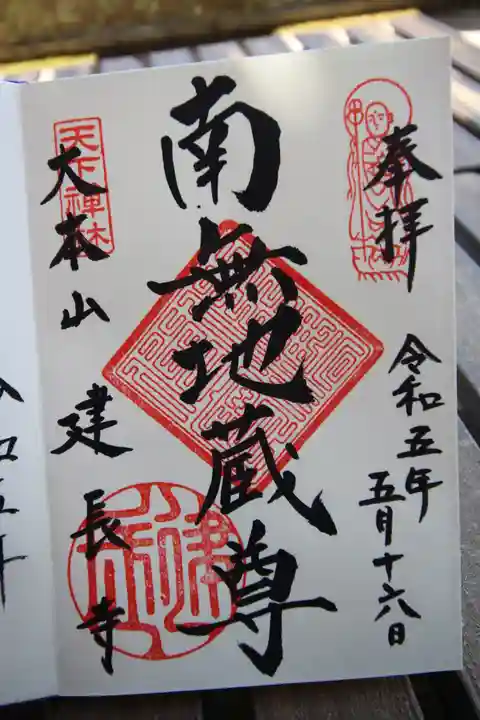 奉拝
令和五年
五月十六日
南無地蔵尊
天下禅林
大本山 建長寺
令和五年